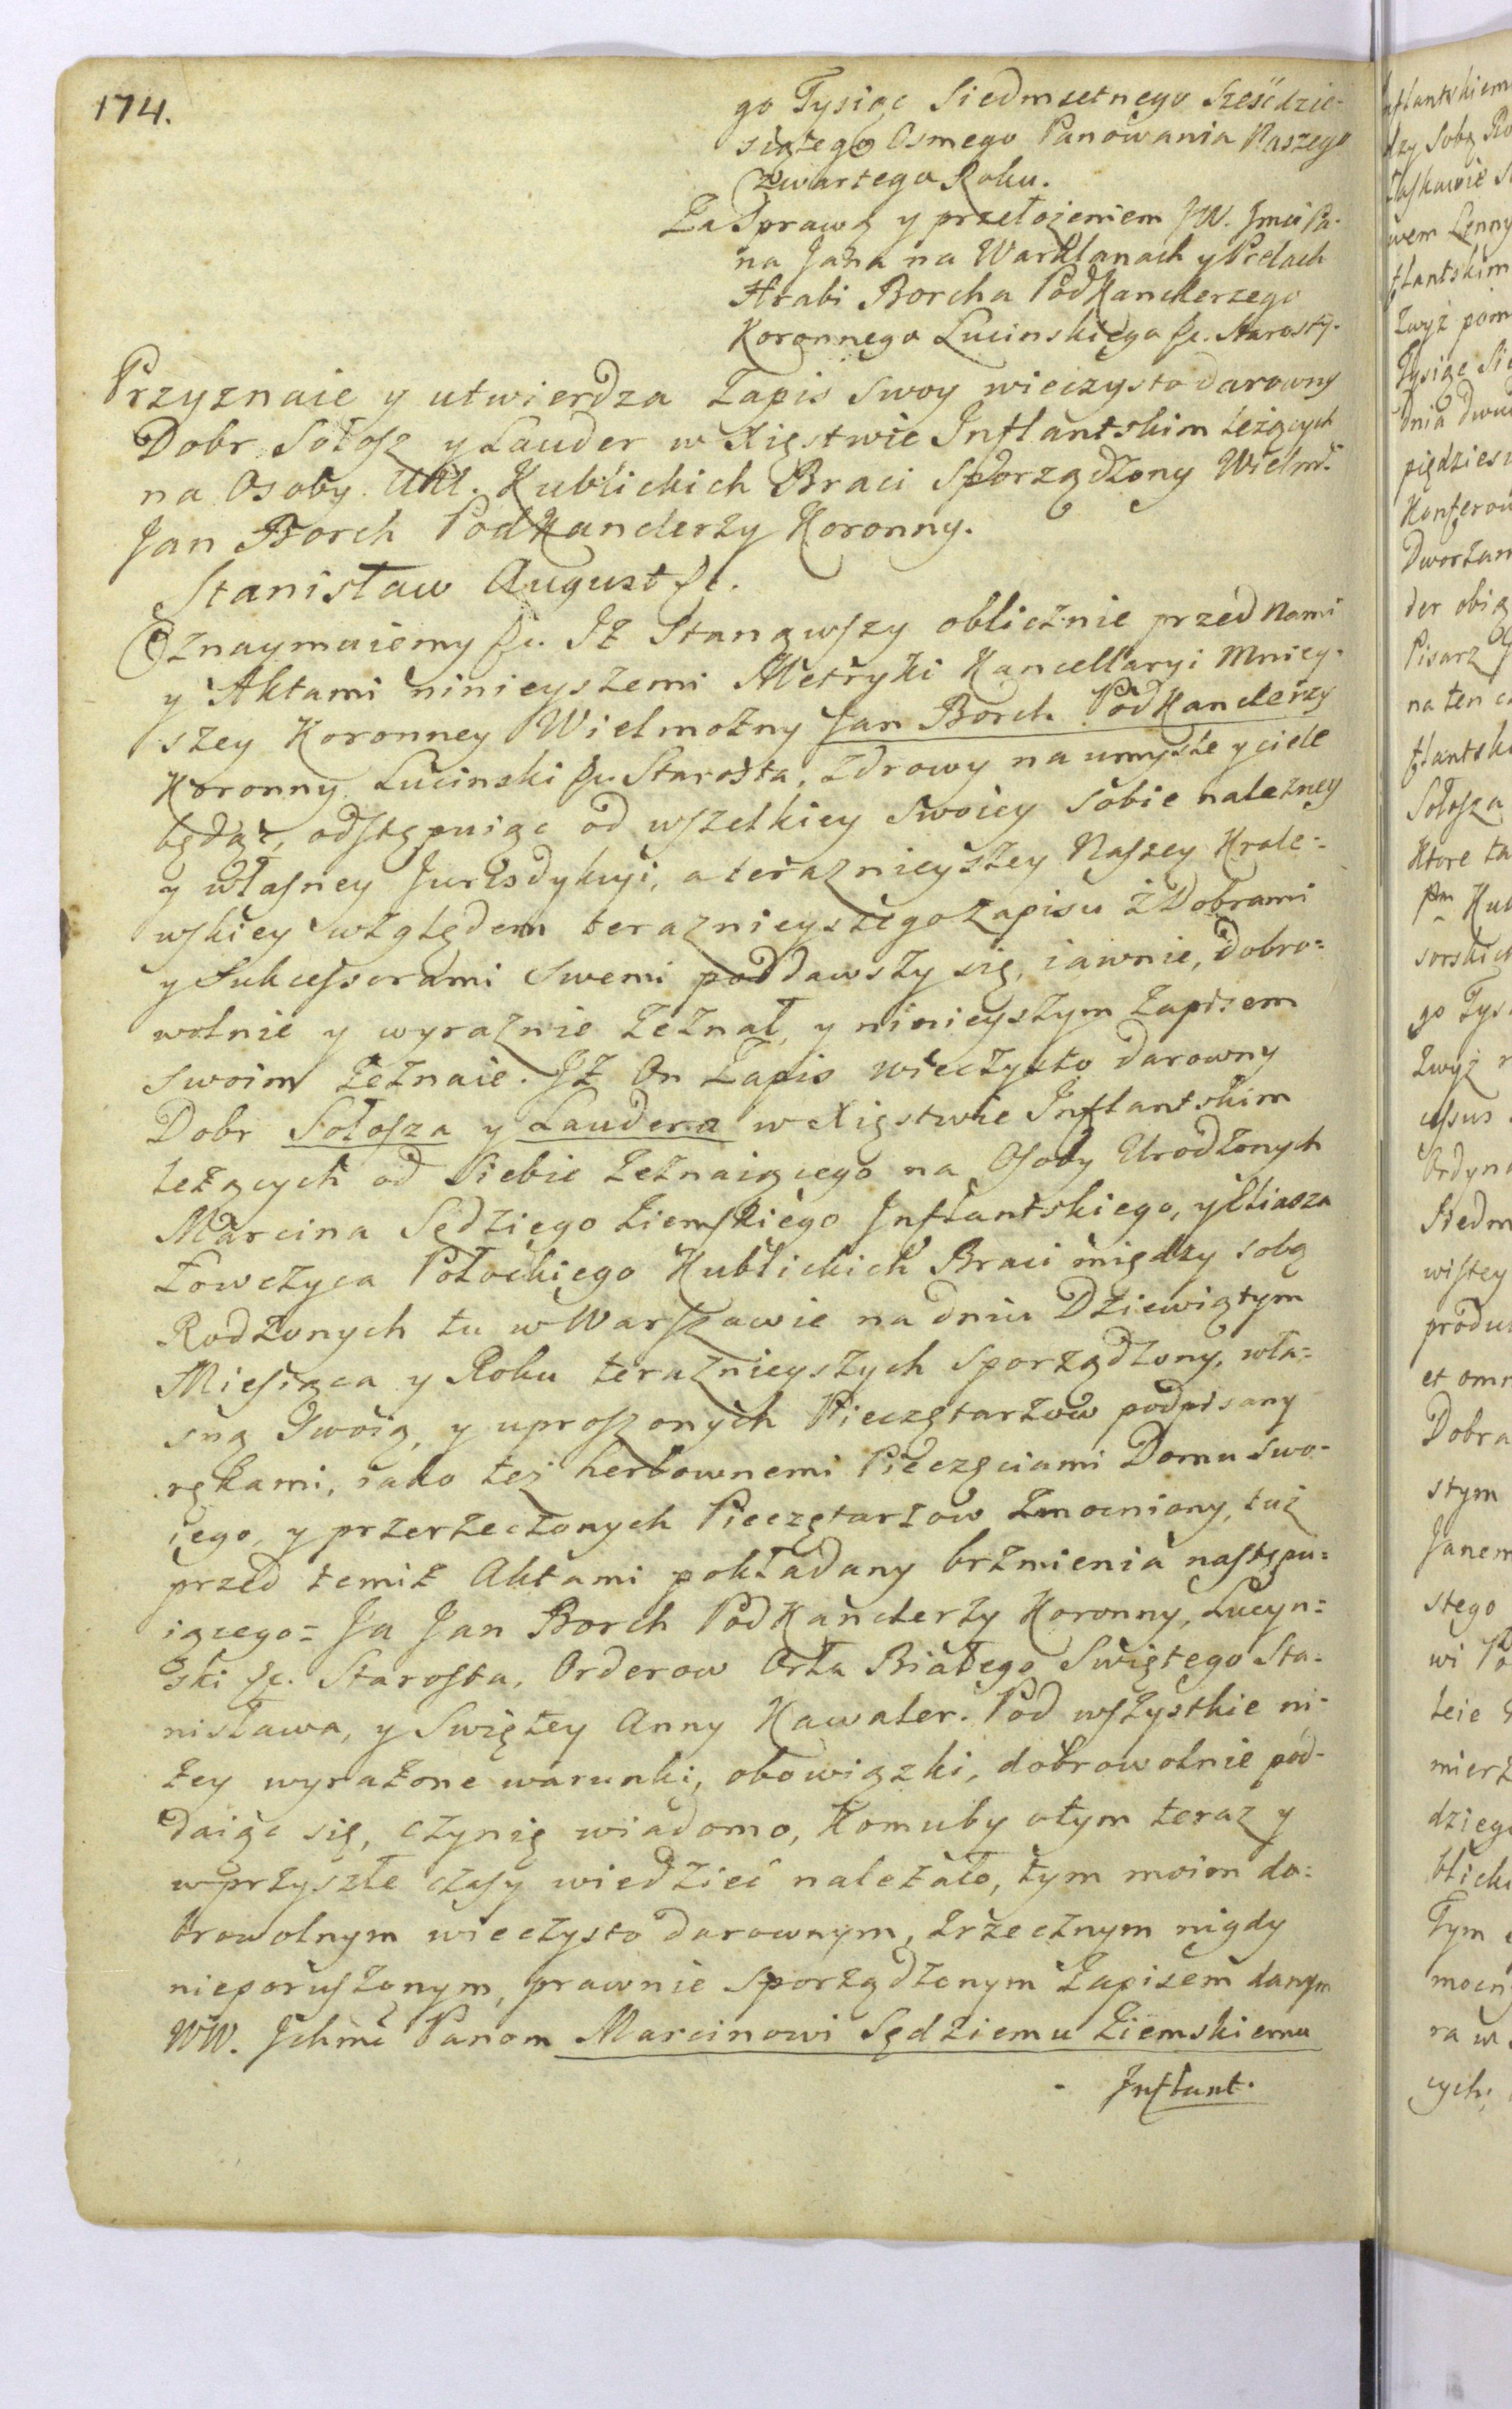 174.
go Tysiąc Siedmsetnego Sześćdzie-
siątego Osmego Panowania Naszego
Czwartego Roku.
Za Sprawą y przełożeniem JW. Jmci Pa-
na Jana na Warklanach y Prelach
Hrabi Borcha PodKanclerzego
Koronnego Lucinskiego &c. Starosty.
Przyznaie y utwierdza Zapis Swoy wieczysto darowny
Dobr Sołosz y Lauder w Xięstwie Inflantskim leżących
na Osoby UU. Kublickich Braci Sporządzony Wielm.
Jan Borch PodKanclerzy Koronny.
Stanisław August &c.
Oznaymuiemy &c. Iż Stanąwszy oblicznie przed Nami
y Aktami ninieyszemi Metryki Kancellaryi Mniey-
szey Koronney Wielmożny Jan Borch PodKanclerzy
Koronny Lucinski &c. Starosta, zdrowy na umyśle y ciele
będąc, odstępuiąc od wszelkiey Swoiey Sobie należney
y własney Jurisdykcyi, a teraznieyszey Naszey Krole-
wskiey względem teraznieyszego Zapisu z Dobrami
y Sukcessorami Swemi poddawszy się, iawnie, dobro-
wolnie y wyraznie zeznał, y ninieyszym Zapisem
Swoim zeznaie. Iż On Zapis wieczysto darowny
Dobr Sołosza y Laudera w Xięstwie Inflantskim
leżących od Siebie zeznaiącego na Osoby Urodzonych
Marcina Sędziego Ziemskiego Inflantskiego, y Eliasza
Łowczyca Połockiego Kublickich Braci między sobą
Rodzonych tu w Warszawie na dniu Dziewiątym
Miesiąca y Roku teraznieyszych Sporządzony, wła-
sną Swoią, y uproszonych Pieczętarzow podpisany
rękami, iako też herbownemi Pieczęciami Domu Swo-
iego, y przerzeczonych Pieczętarzow zmocniony, tuż
przed temiż Aktami pokładany brzmienia nastepu-
iącego = Ja Jan Borch PodKanclerzy Koronny, Lucyn-
ski &c. Starosta, Orderow Orła Białego Swiętego Sta-
nisława, y Swiętey Anny Kawaler. Pod wszystkie ni-
żey wyrażone warunki, obowiązki, dobrowolnie pod-
daiąc się, czynię wiadomo, Komuby otym teraz y
w przyszłe czasy wiedzieć należało, tym moim do-
browolnym wieczysto darownym, zrzecznym nigdy
nieporuszonym, prawnie Sporządzonym Zapisem danym
WW. Ichmć Panom Marcinowi Sędziemu Ziemskiemu
Inflant.